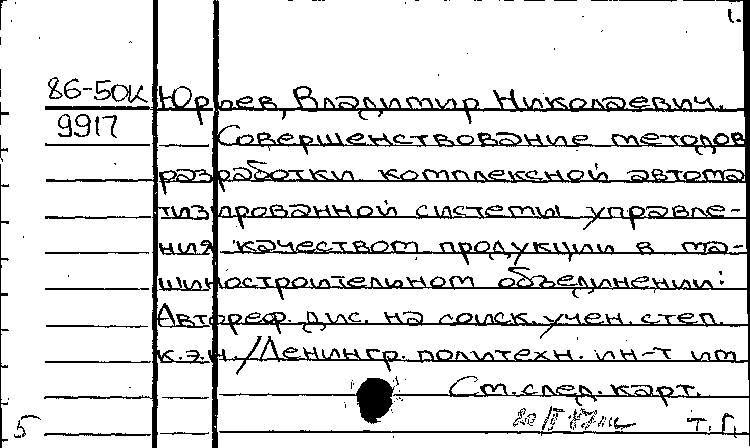 1.
86-50К Юрьев, Владимир Николаевич.
9917 Совершенствование методов
разработки комплексной автома
тизированной системы управле-
ния качеством продукции в ма-
шиностроительном объединении:
Автореф. дис. на соиск. учен. степ.
к.э.н. / Ленингр. политехн. ин-т им
См. след. карт.
5 Т.П.